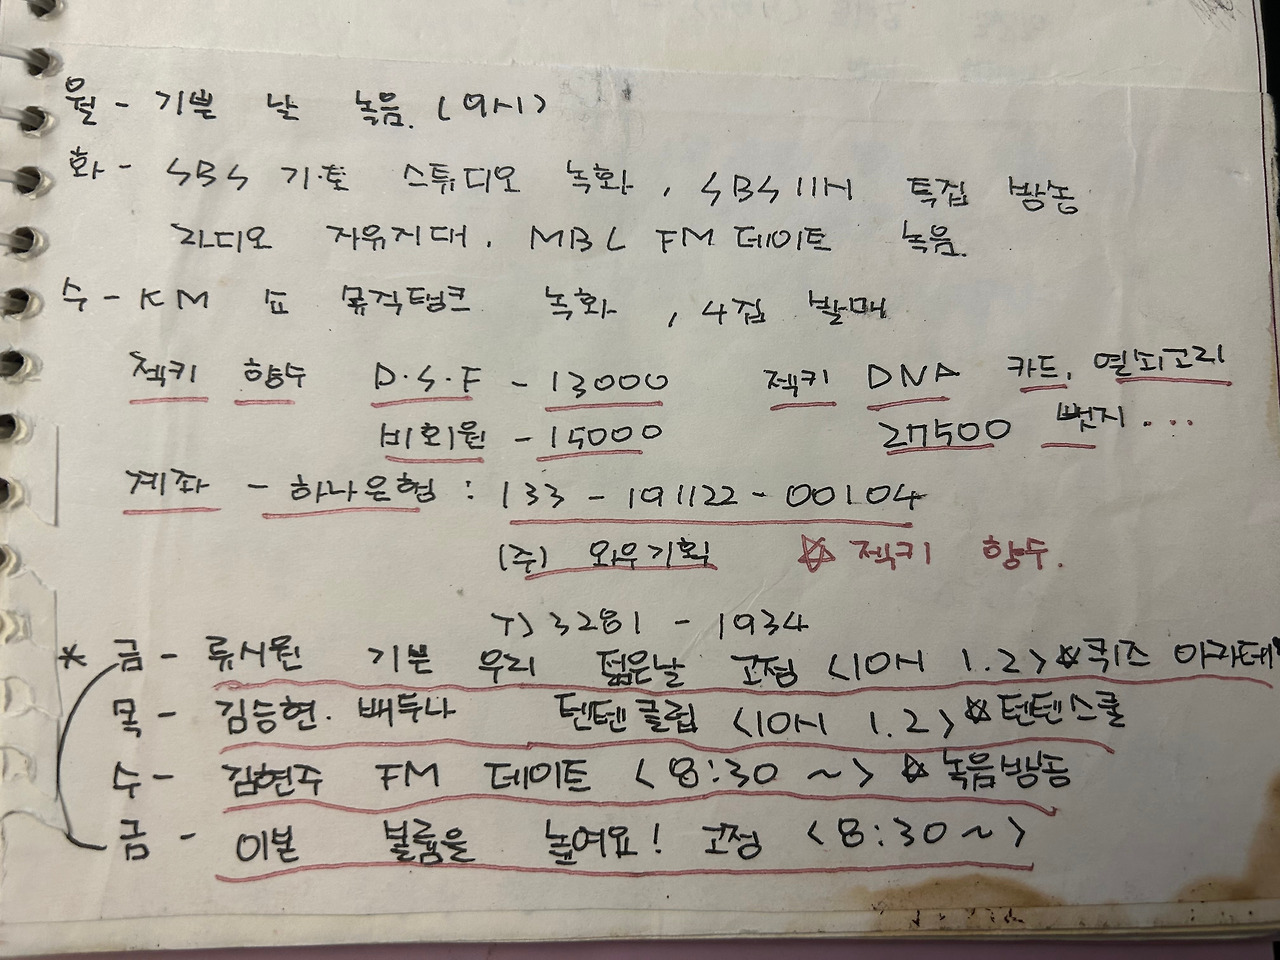 월 - 기쁜 날 녹음. (9H)
화 - SBS 기·토 스튜디오 녹화, SBS 11H 특집 방송
라디오 자유지대. MBC FM 데이트 녹음.
수 - KM 쇼 뮤직탱크 녹화, 4집 발매
젝키 향수 D.S.F - 13000 젝키 DNA 카드, 열쇠고리
비회원 - 15000 27500 뺏지...
계좌 - 하나은행 : 133 - 191122 - 00104
(주) 와우기획 ☆ 젝키 향수.
T) 3281 - 1934
* 금 - 류시원 기쁜 우리 젊은날 고정 <10H 1.2> ☆퀴즈 아카데
목 - 김승현. 배두나 텐텐클럽 <10H 1.2> ☆텐텐스쿨
수 - 김현주 FM 데이트 <8:30 ~> ☆녹음방송
금 - 이본 볼륨을 높여요! 고정 <8:30~>